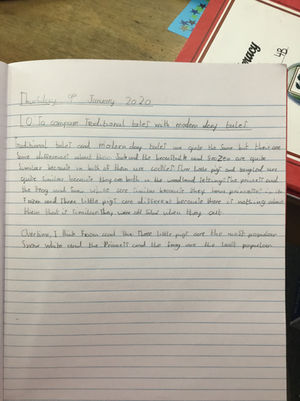 Thursday 9th January 2020
LO To compare Traditional tales with modern day tales
Traditional tales and Modern day tales are quite the same but there are
some differences about them Jack and the beanstalk and Frozen are quite
similar because in both of them are castles. Three little pigs and tangled are
quite similar because they are both in the woodland setting. The princess and
the frog and Snow white are similar because they have princesses in it.
Frozen and Three little pigs are different because there is nothing about
them that is similar. They were all said when they
Overtime, I think Frozen and the Three little pigs are the most popular
Snow white and the Princess and the frog are the least popular.